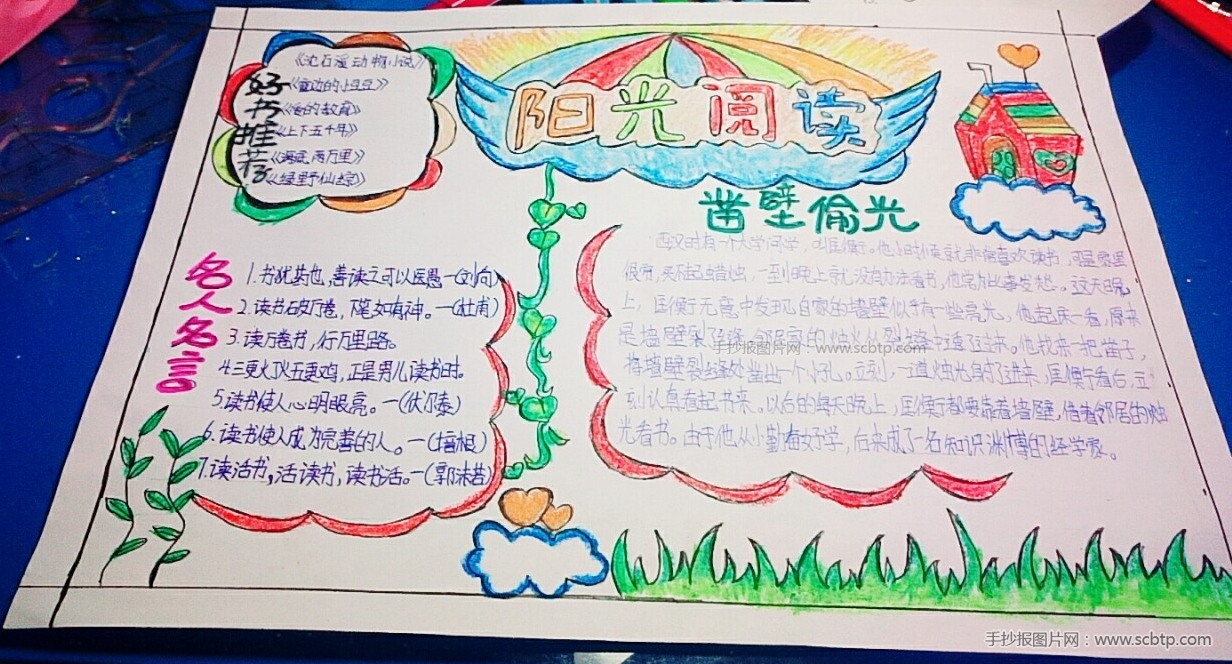 阳光阅读
好书推荐
《沈石溪动物小说》
《窗边的小豆豆》
《爱的教育》
《上下五千年》
《海底两万里》
《绿野仙踪》
名人名言
1.书犹药也,善读之可以医愚—(刘向)
2.读书破万卷,下笔如有神。—(杜甫)
3.读万卷书,行万里路。
4.三更火灯五更鸡,正是男儿读书时。
5.读书使人心明眼亮。—(伏尔泰)
6.读书使人成为完善的人。—(培根)
7.读活书,活读书,读书活。—(郭沫若)
凿壁偷光
西汉时有一个大学问学,叫匡衡。他小时候就非常喜欢读书,可是家里
很穷,买不起蜡烛,一到晚上就没有办法看书,他常为此事发愁。这天晚
上,匡衡无意中发现自家的墙壁似乎有一些亮光,他起床一看,原来
是墙壁裂了缝,邻居家的烛火从裂缝处透了过来。他找来一把凿子,
将墙壁裂缝处凿出一个小孔。立刻,一道烛光射了进来,匡衡看台,立
刻认真看起书来。以台的每天晚上,匡衡都要靠着墙壁,借着邻居的烛
光看书。由于他从小勤奋好学,后来成了一名知识渊博的经学家。
手抄报图片网:www.scbtp.com
手抄报图片网:www.scbtp.com